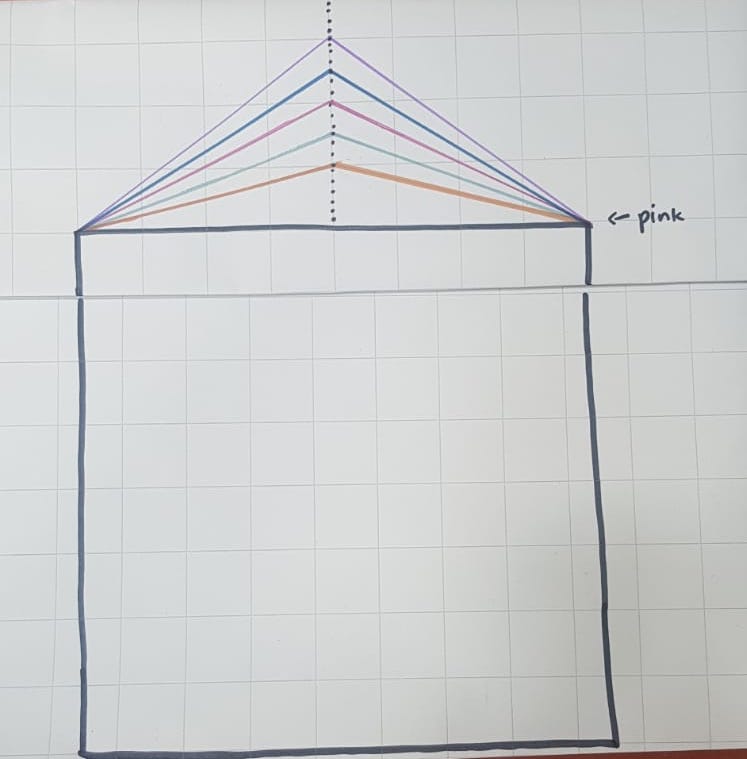 ← pink